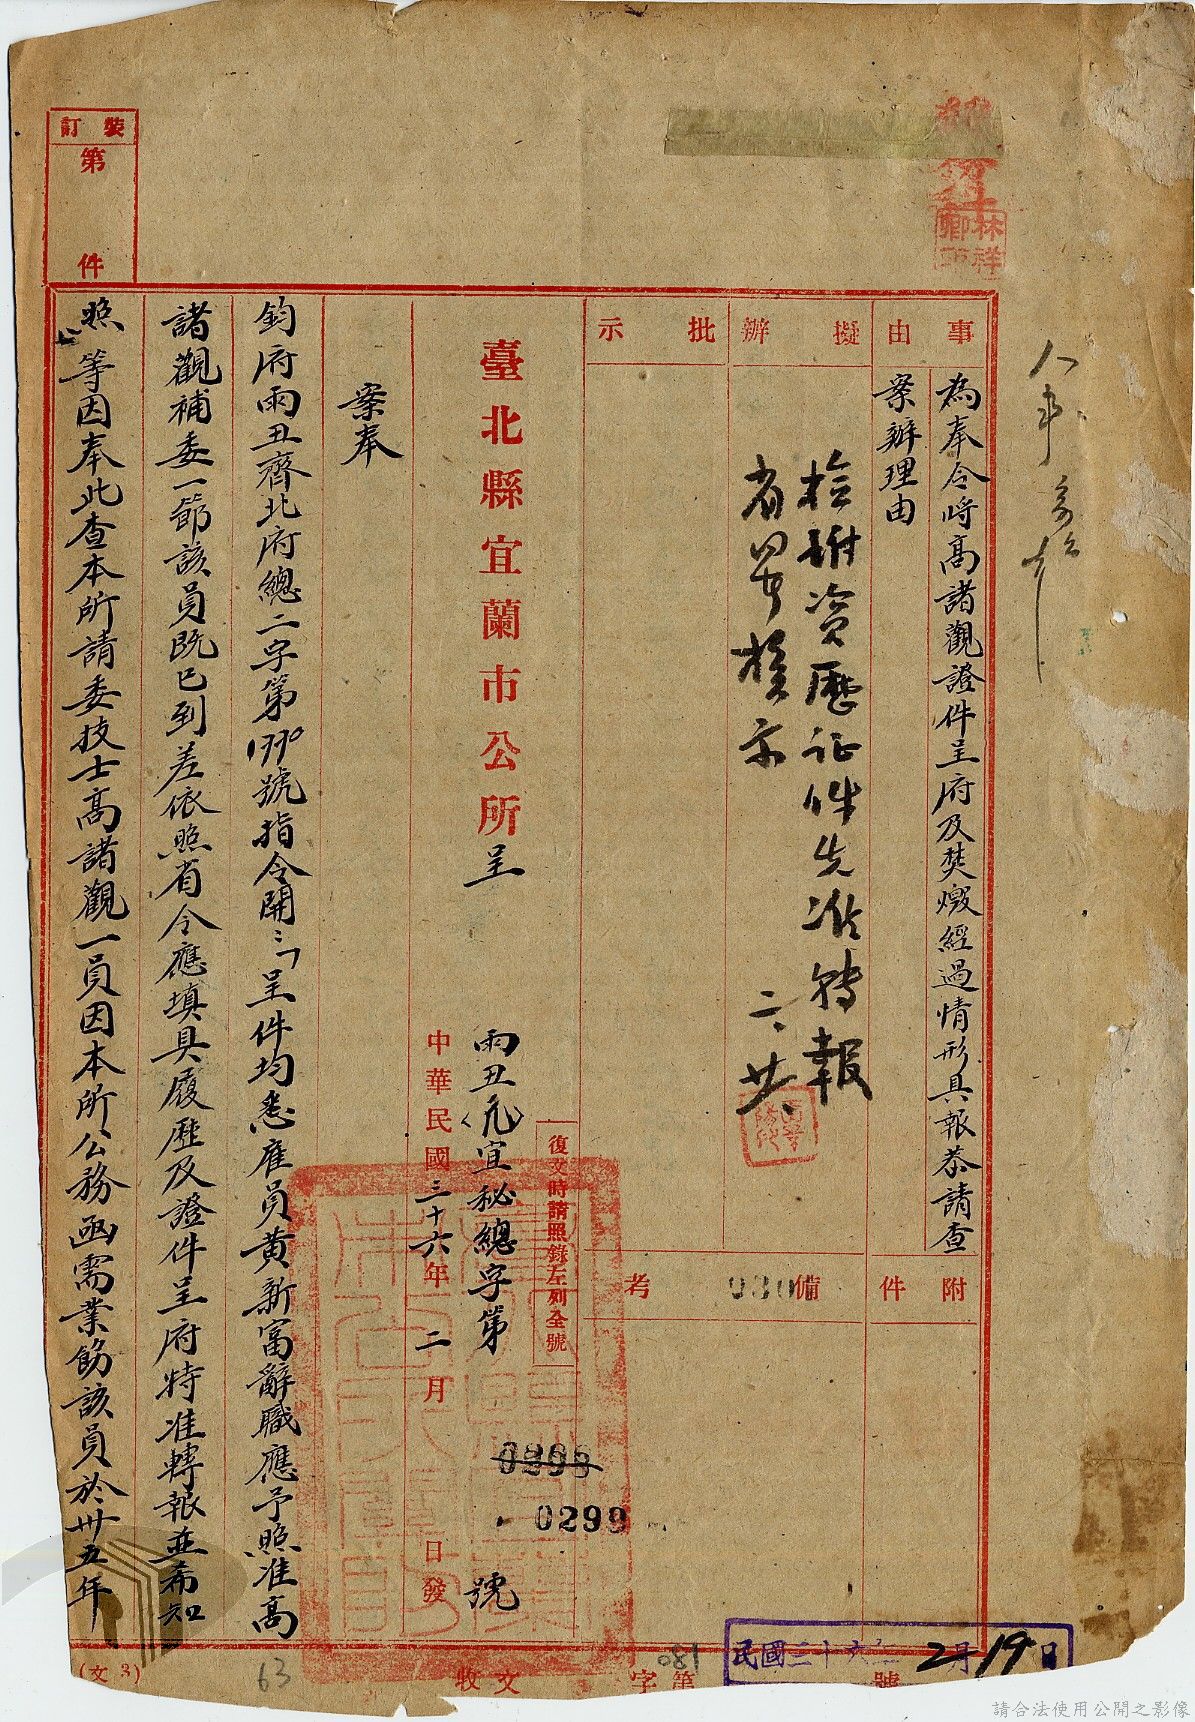 裝訂
第
件
林祥
卿印
人事
事由
為奉令將高諸觀證件呈府及焚燬經過情形具報恭請查
案辦理由
擬辦
檢附資歷证件先准转報
省署核示
二、廿
批示
附件
備考
930
臺北縣宜蘭市公所呈
復文時請照錄左列全號
雨丑〈元〉宜秘總字第
0298
0299
號
中華民國三十六年二月
日發
案奉
鈞府雨丑齊北府總二字第1990號指令開：「呈件均悉雇員黃新富辭職應予照准高
諸觀補委一節該員既已到差依照省令應填具履歷及證件呈府特准轉報並希知
照」等因奉此查本所請委技士高諸觀一員因本所公務函需業飭該員於卅五年
(文3)
63
收文
字第
081
號
民國三十六年2月19日
請合法使用公開之影像